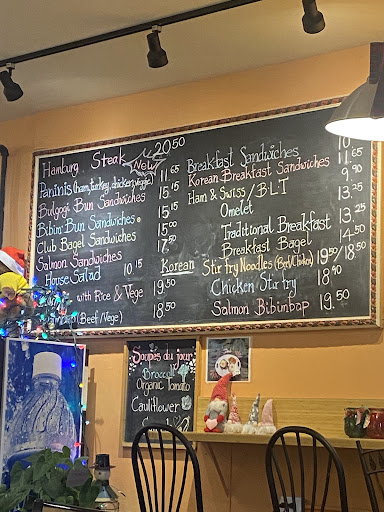 Hamburg Steak New 20.50
Paninis (ham, turkey, chicken, veggie) 11.65
Bulgogi Bun Sandwiches 15.15
Bibim Bun Sandwiches 15.15
Club Bagel Sandwiches 15.05
Salmon Sandwiches 17.50
House Salad 10.15
with Rice & Vege 19.50
(Beef/Vege) 18.50
Breakfast Sandwiches 10
Korean Breakfast Sandwiches 11.65
Ham & Swiss / B.L.T 9.90
Omelet 13.25
Traditional Breakfast 13.25
Breakfast Bagel 14.50
Korean
Stir fry Noodles (Beef/Chicken) 19.50/18.50
Chicken Stir fry 18.90
Salmon Bibimbop 19.50
Soupes du jour
Broccoli
Organic Tomato
Cauliflower